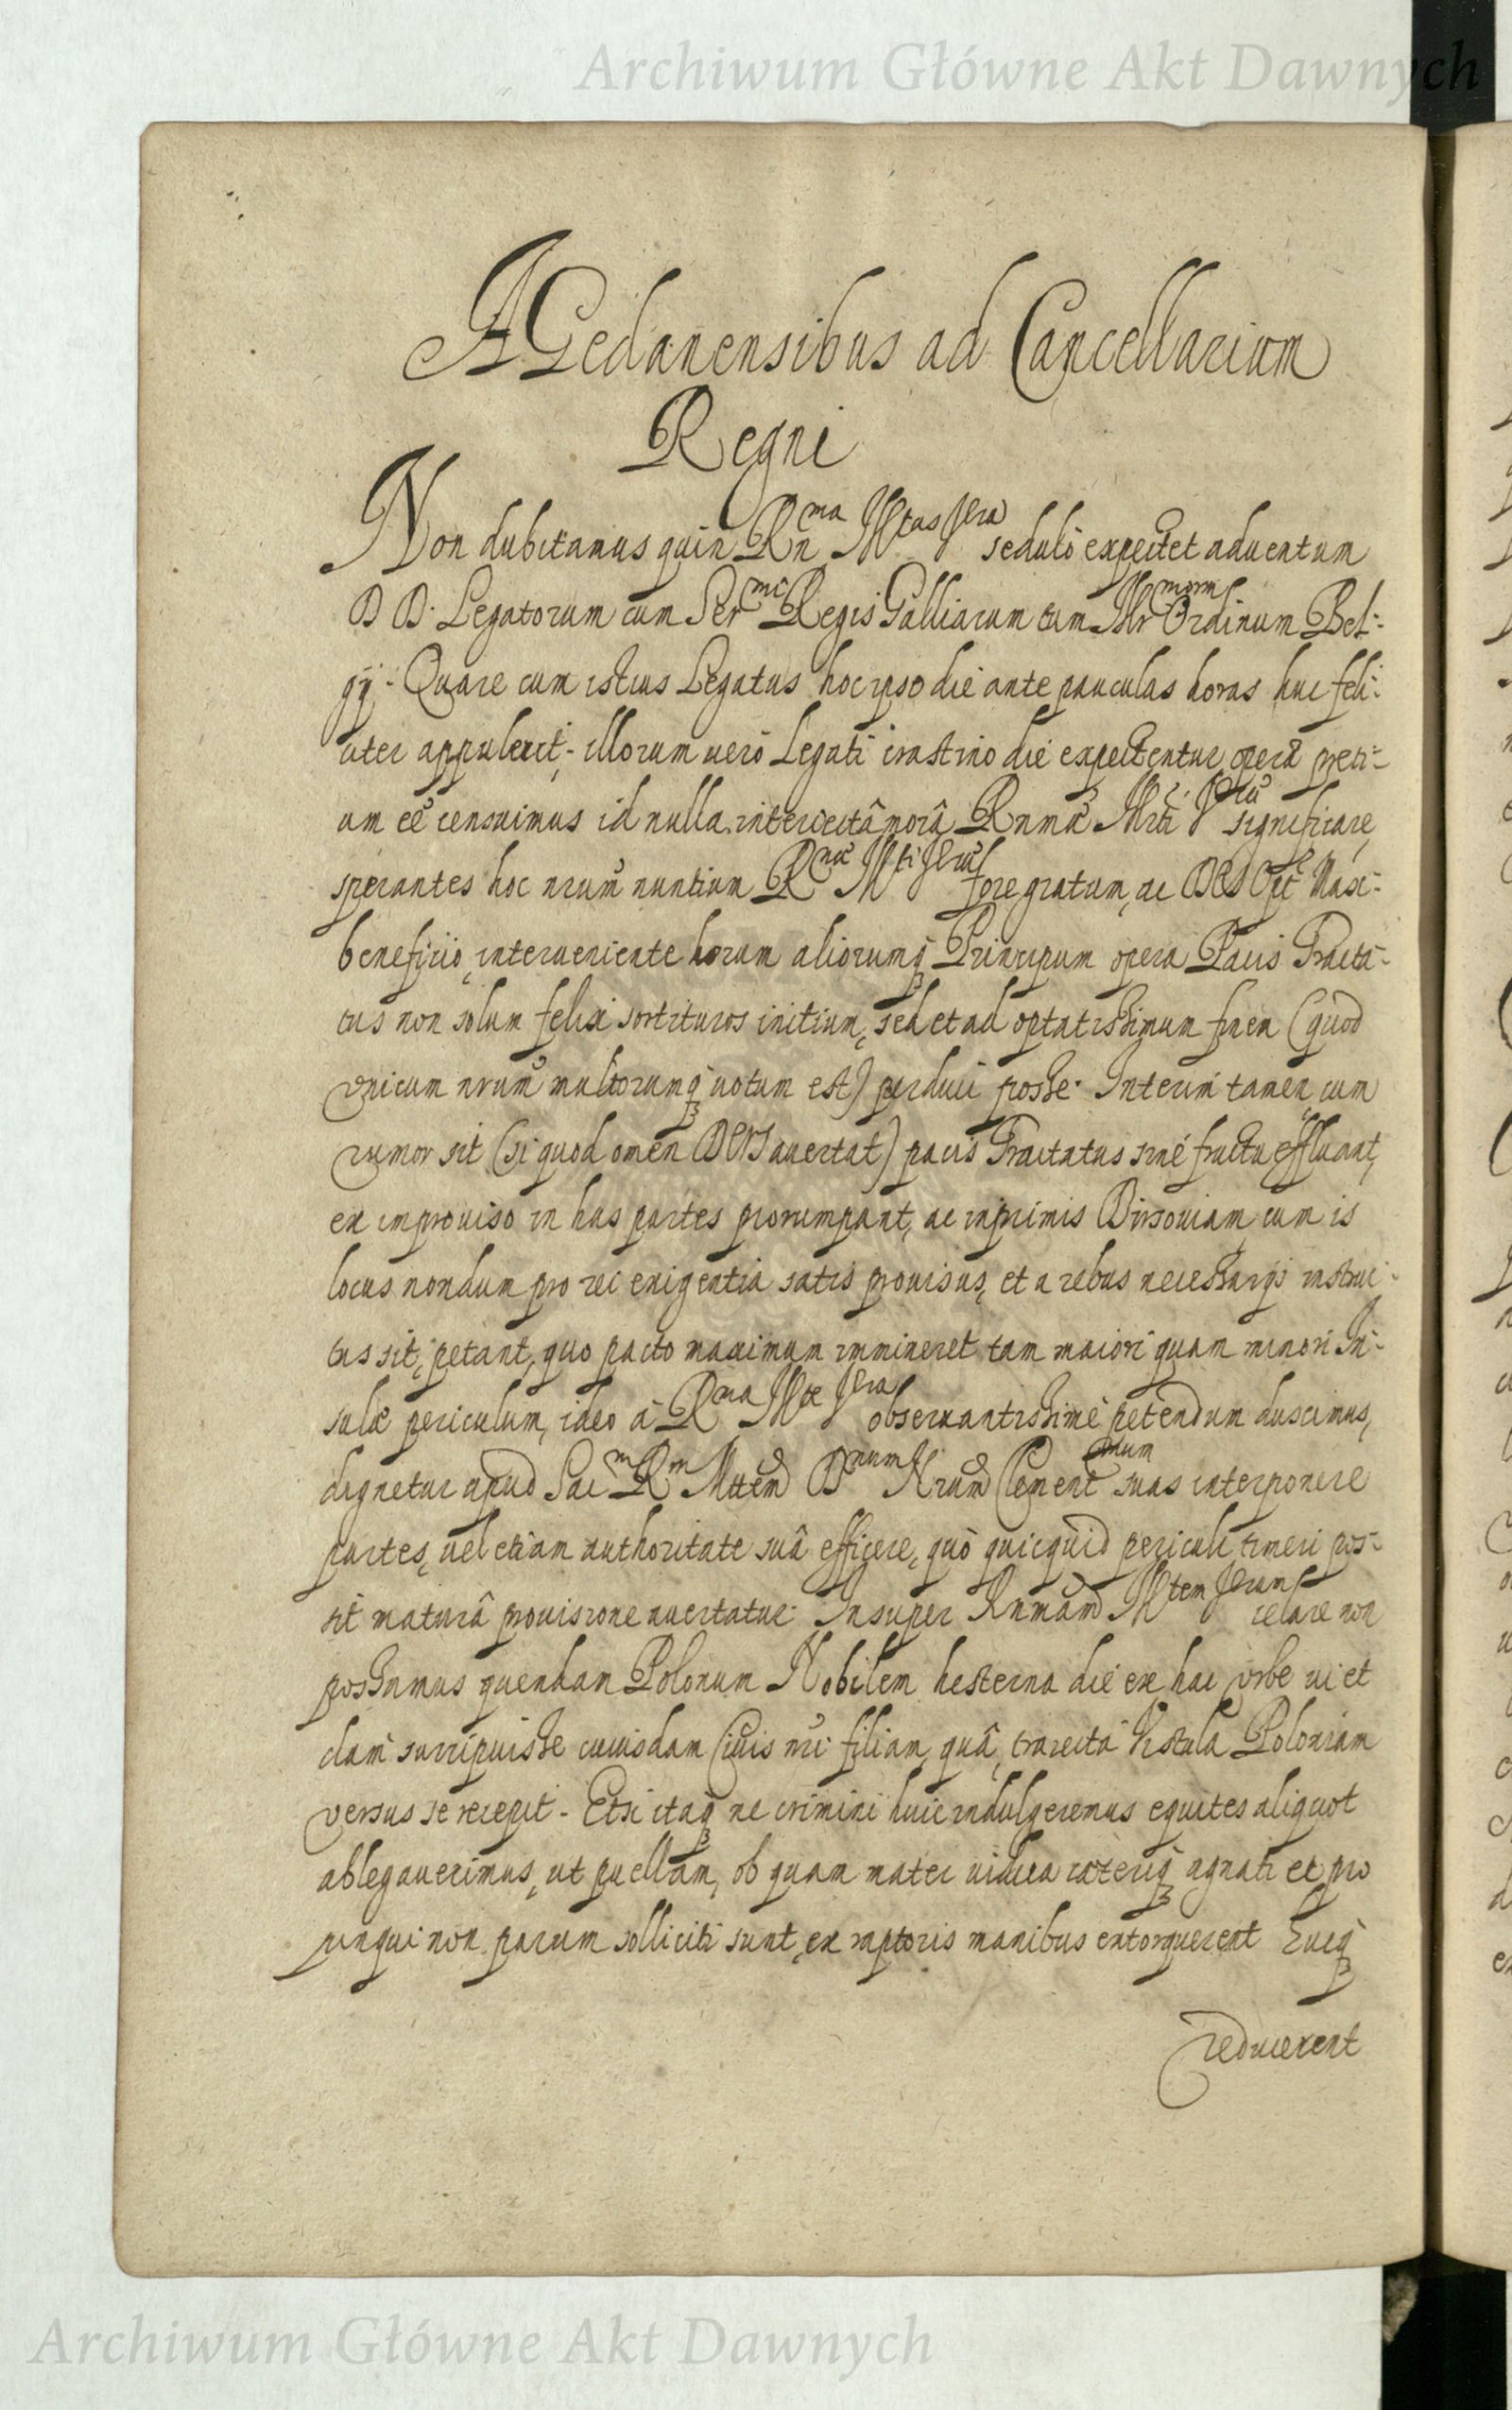 Archiwum Główne Akt Dawnych
A Gedanensibus ad Cancellarium
Regni
Non dubitamus quin Rn̄ma Mtas Vra sedulò expectet aduentum
D D. Legatorum cum Sermi Regis Galliarum tum Illrmorm Ordinum Bel-
gÿ. Quare cum istius Legatus hoc ipso die ante pauculas horas huc feli-
citer appulerit, illorum uerò Legati crastino die expectentur, operæ preti-
um eē censuimus id nulla interiectâ morâ Rnmæ Mti Vræ significare,
sperantes hoc nrum̄ nuntium Rmæ Mti Vræ fore gratum, ac DEI Opt Maxi-
beneficio, interueniente horum aliorumq; Principum opera Pacis Tracta-
tus non solum felix sortituros initium, sed et ad optatissimum finem (quod
vnicum nrum̄ multorumq; uotum est) perduci posse. Interim tamen cum
rumor sit (si quod omen DEUS auertat) pacis Tractatus sine fructu effluant,
ex improuiso in has partes prorumpant, ac inprimis Dirsouiam, cum is
locus nondum pro rei exigentia satis prouisus, et a rebus necessarÿs instruc-
tus sit, petant, quo pacto maximum immineret tam maiori quam minori In-
sulæ periculum, ideo à Rma Mte Vra obseruantissimè petendum duximus,
dignetur apud Sacm Rm Mttem Dnum Nrum Clement mum suas interponere
partes, uel etiam authoritate suâ efficere, quò quicquid periculi timeri pos-
sit maturâ prouisione auertatur. Insuper Rnmam Mtem Vram celare non
possumus quendam Polonum Nobilem hesterna die ex hac vrbe ui et
clam surripuisse cuiusdam Ciuis nri filiam, quâ, traiecta Vistula Poloniam
versus se recepit. Etsi itaq; ne crimini huic indulgeremus equites aliquot
ablegauerimus, ut puellam, ob quam mater uidua cæteriq; agnati et pro
pinqui non parum solliciti sunt, ex raptoris manibus extorquerent hucq;
reducerent
Archiwum Główne Akt Dawnych